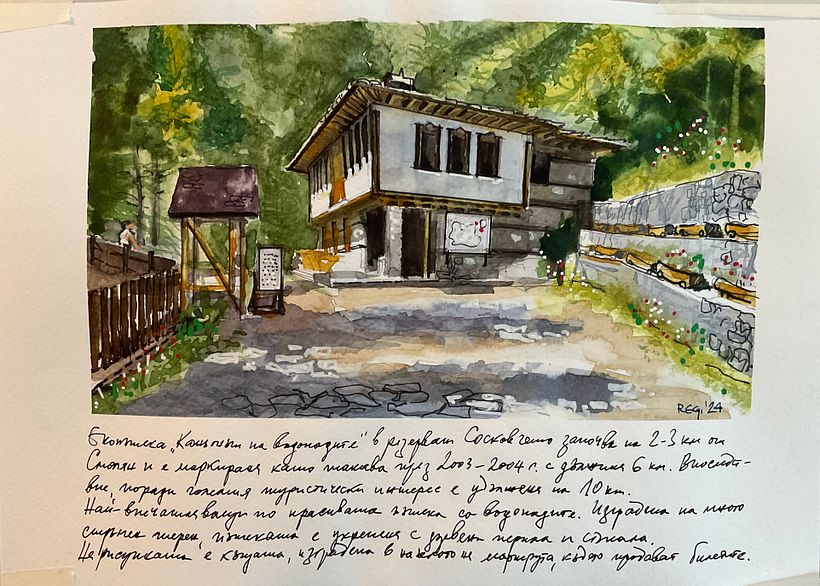 REG.'24
Екопътека „Каньонът на водопадите" в резерват Сосковчето започва на 2-3 км от
Смолян и е маркирана като такава през 2003-2004 г. с дължина 6 км. Впоследст-
вие, поради големия туристически интерес е удължена на 10 км.
Най-впечатляващи по красивата пътека са водопадите. Изградена на много
стръмен терен, пътеката е укрепена с дървени перила и стъпала.
На рисунката е къщата, изградена в началото на маршрута, където продават билети.